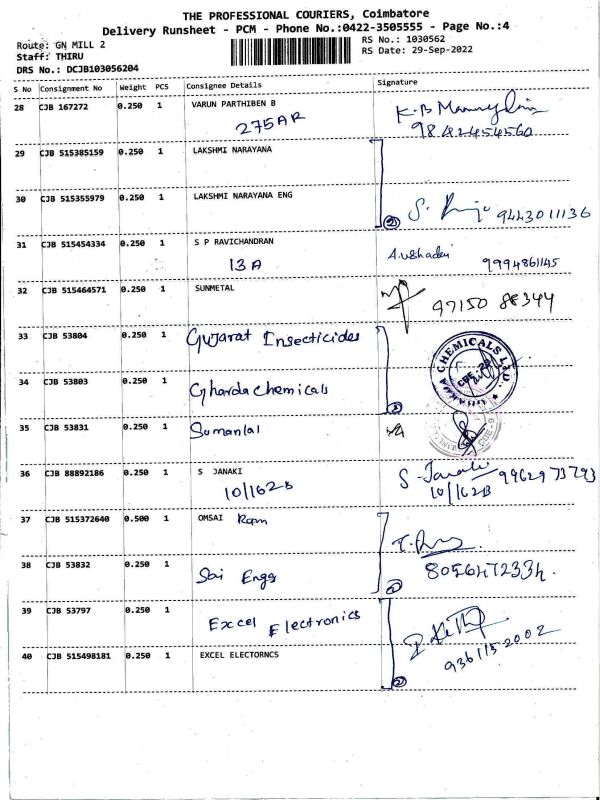 THE PROFESSIONAL COURIERS, Coimbatore
Delivery Runsheet - PCM - Phone No.:0422-3505555 - Page No.:4
Route: GN MILL 2
RS No.: 1030562
Staff: THIRU
RS Date: 29-Sep-2022
DRS No.: DCJB103056204
S No Consignment No Weight PCS Consignee Details Signature
28 CJB 167272 0.250 1 VARUN PARTHIBEN B
275AR
29 CJB 515385159 0.250 1 LAKSHMI NARAYANA
30 CJB 515355979 0.250 1 LAKSHMI NARAYANA ENG
② 9443011136
31 CJB 515454334 0.250 1 S P RAVICHANDRAN
13 A 9994861145
32 CJB 515464571 0.250 1 SUNMETAL
97150 88344
33 CJB 53804 0.250 1 Gujarat Insecticides
34 CJB 53803 0.250 1 Gharda chemicals
CHEMICALS LTD.
35 CJB 53831 0.250 1 Sumanlal
36 CJB 88892186 0.250 1 S JANAKI
10/162B S. Janaki
10/162B
37 CJB 515372640 0.500 1 OMSAI Ram
38 CJB 53832 0.250 1 Sai Engg
39 CJB 53797 0.250 1 Excel Electronics
40 CJB 515498181 0.250 1 EXCEL ELECTORNCS
②